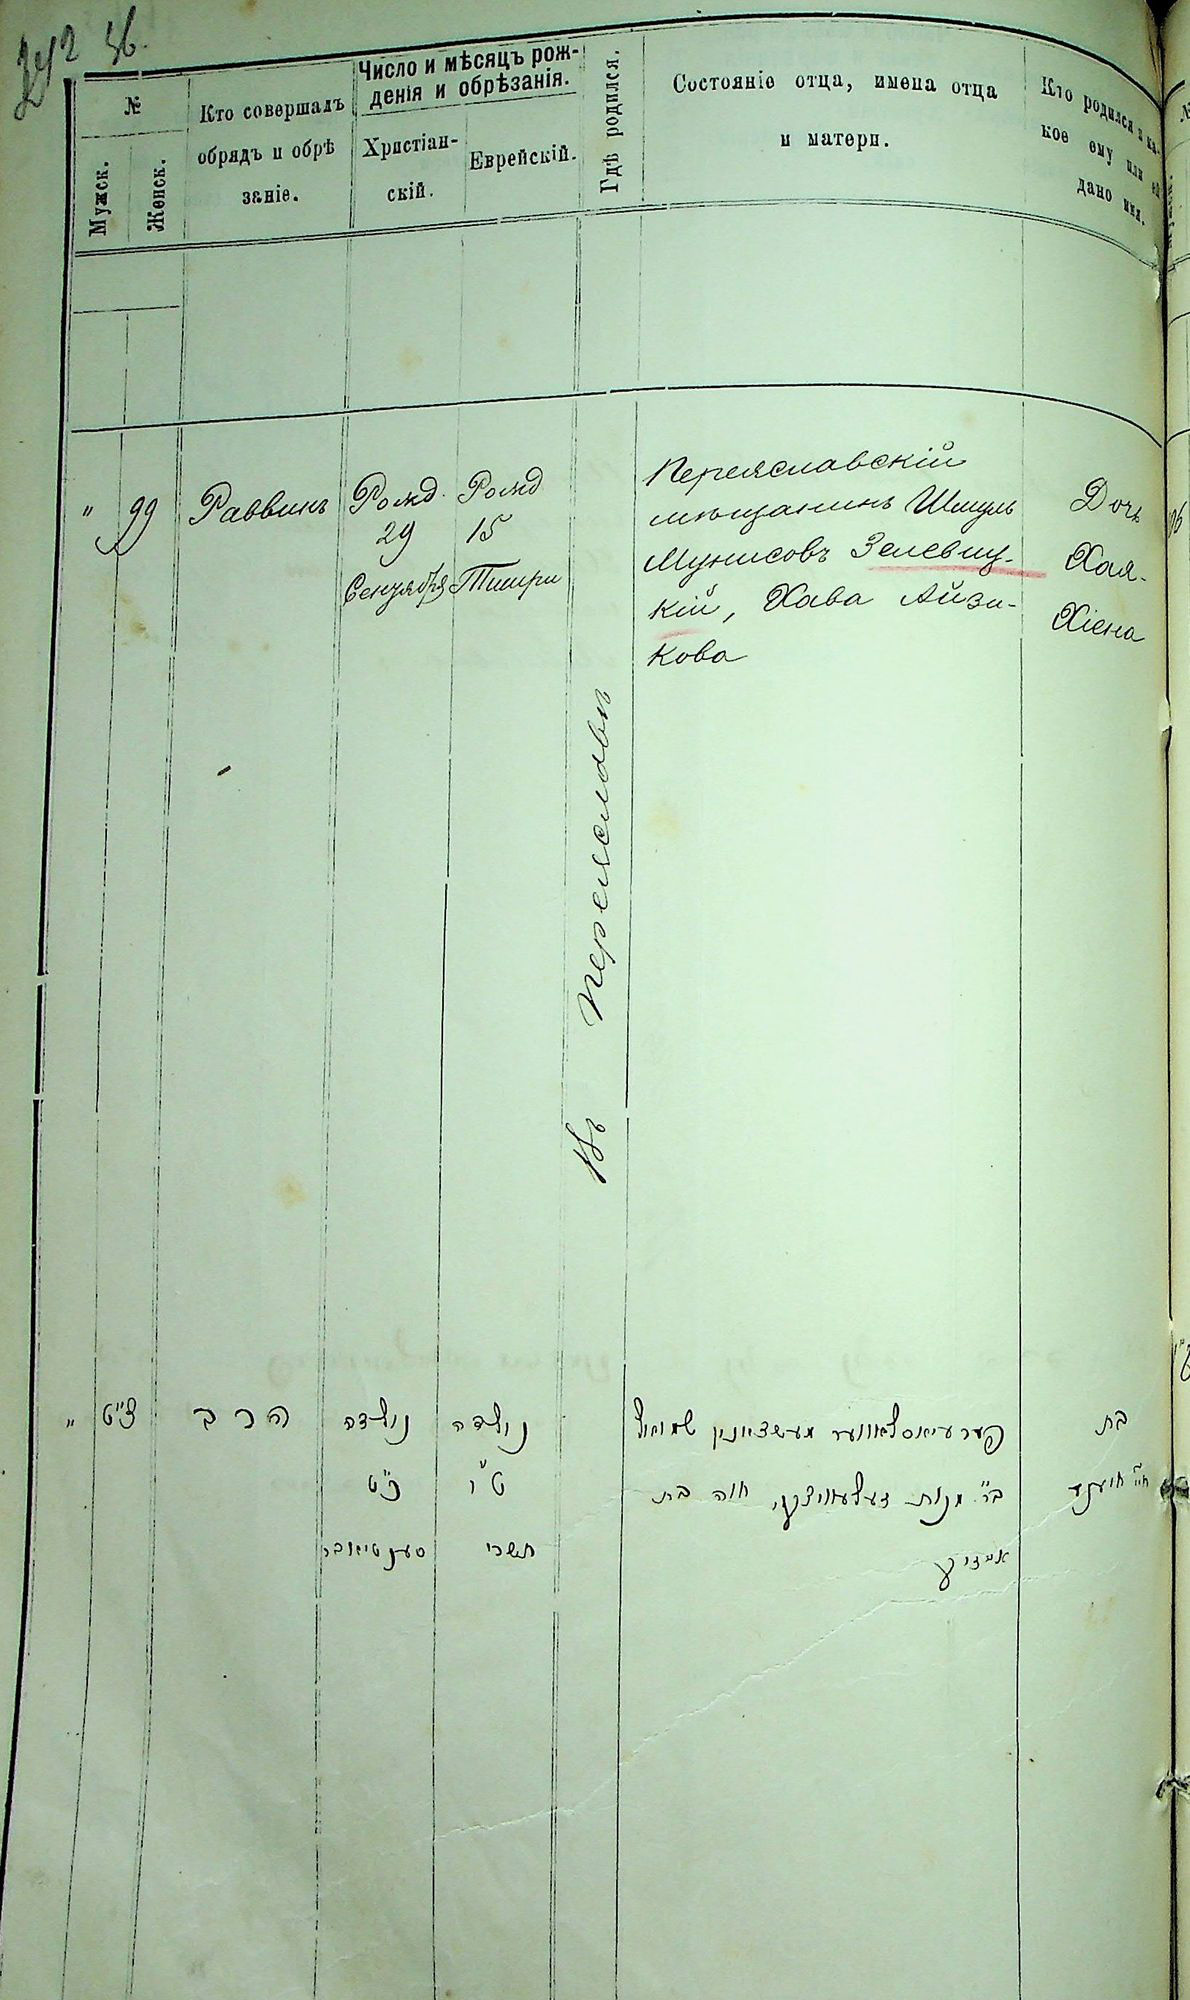 242 56.
№
Мужск.
Женск.
Кто совершалъ
обрядъ и обрѣ
заніе.
Число и мѣсяцъ рож-
денія и обрѣзанія.
Христіан-
скій.
Еврейскій.
Гдѣ родился.
Состояніе отца, имена отца
и матери.
Кто родился и ка-
кое ему или ей
дано имя.
" 99
Раввинъ
Рожд.
29
Сентября
Рожд
15
Тишри
Въ Переяславѣ
Переяславскій
мѣщанинъ Шмуль
Мунисовъ Зелевиц-
кій, Хава Айзи-
кова
Дочь
Хая-
Хіена
" צ״ט
הרב
נולדה
כ״ט
סענטיאבר
נולדה
ט״ו
תשרי
פערעיאסלאווער מעשצאנין שמואל
ב״ר מנוס זעלעוויצקי, חוה בת
אייזיק
בת
חי׳ חיענע